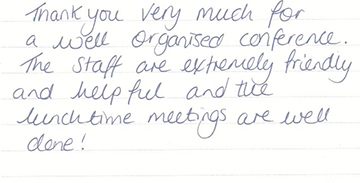 Thank you very much for
a well organised conference.
The staff are extremely friendly
and helpful and the
lunchtime meetings are well
done!